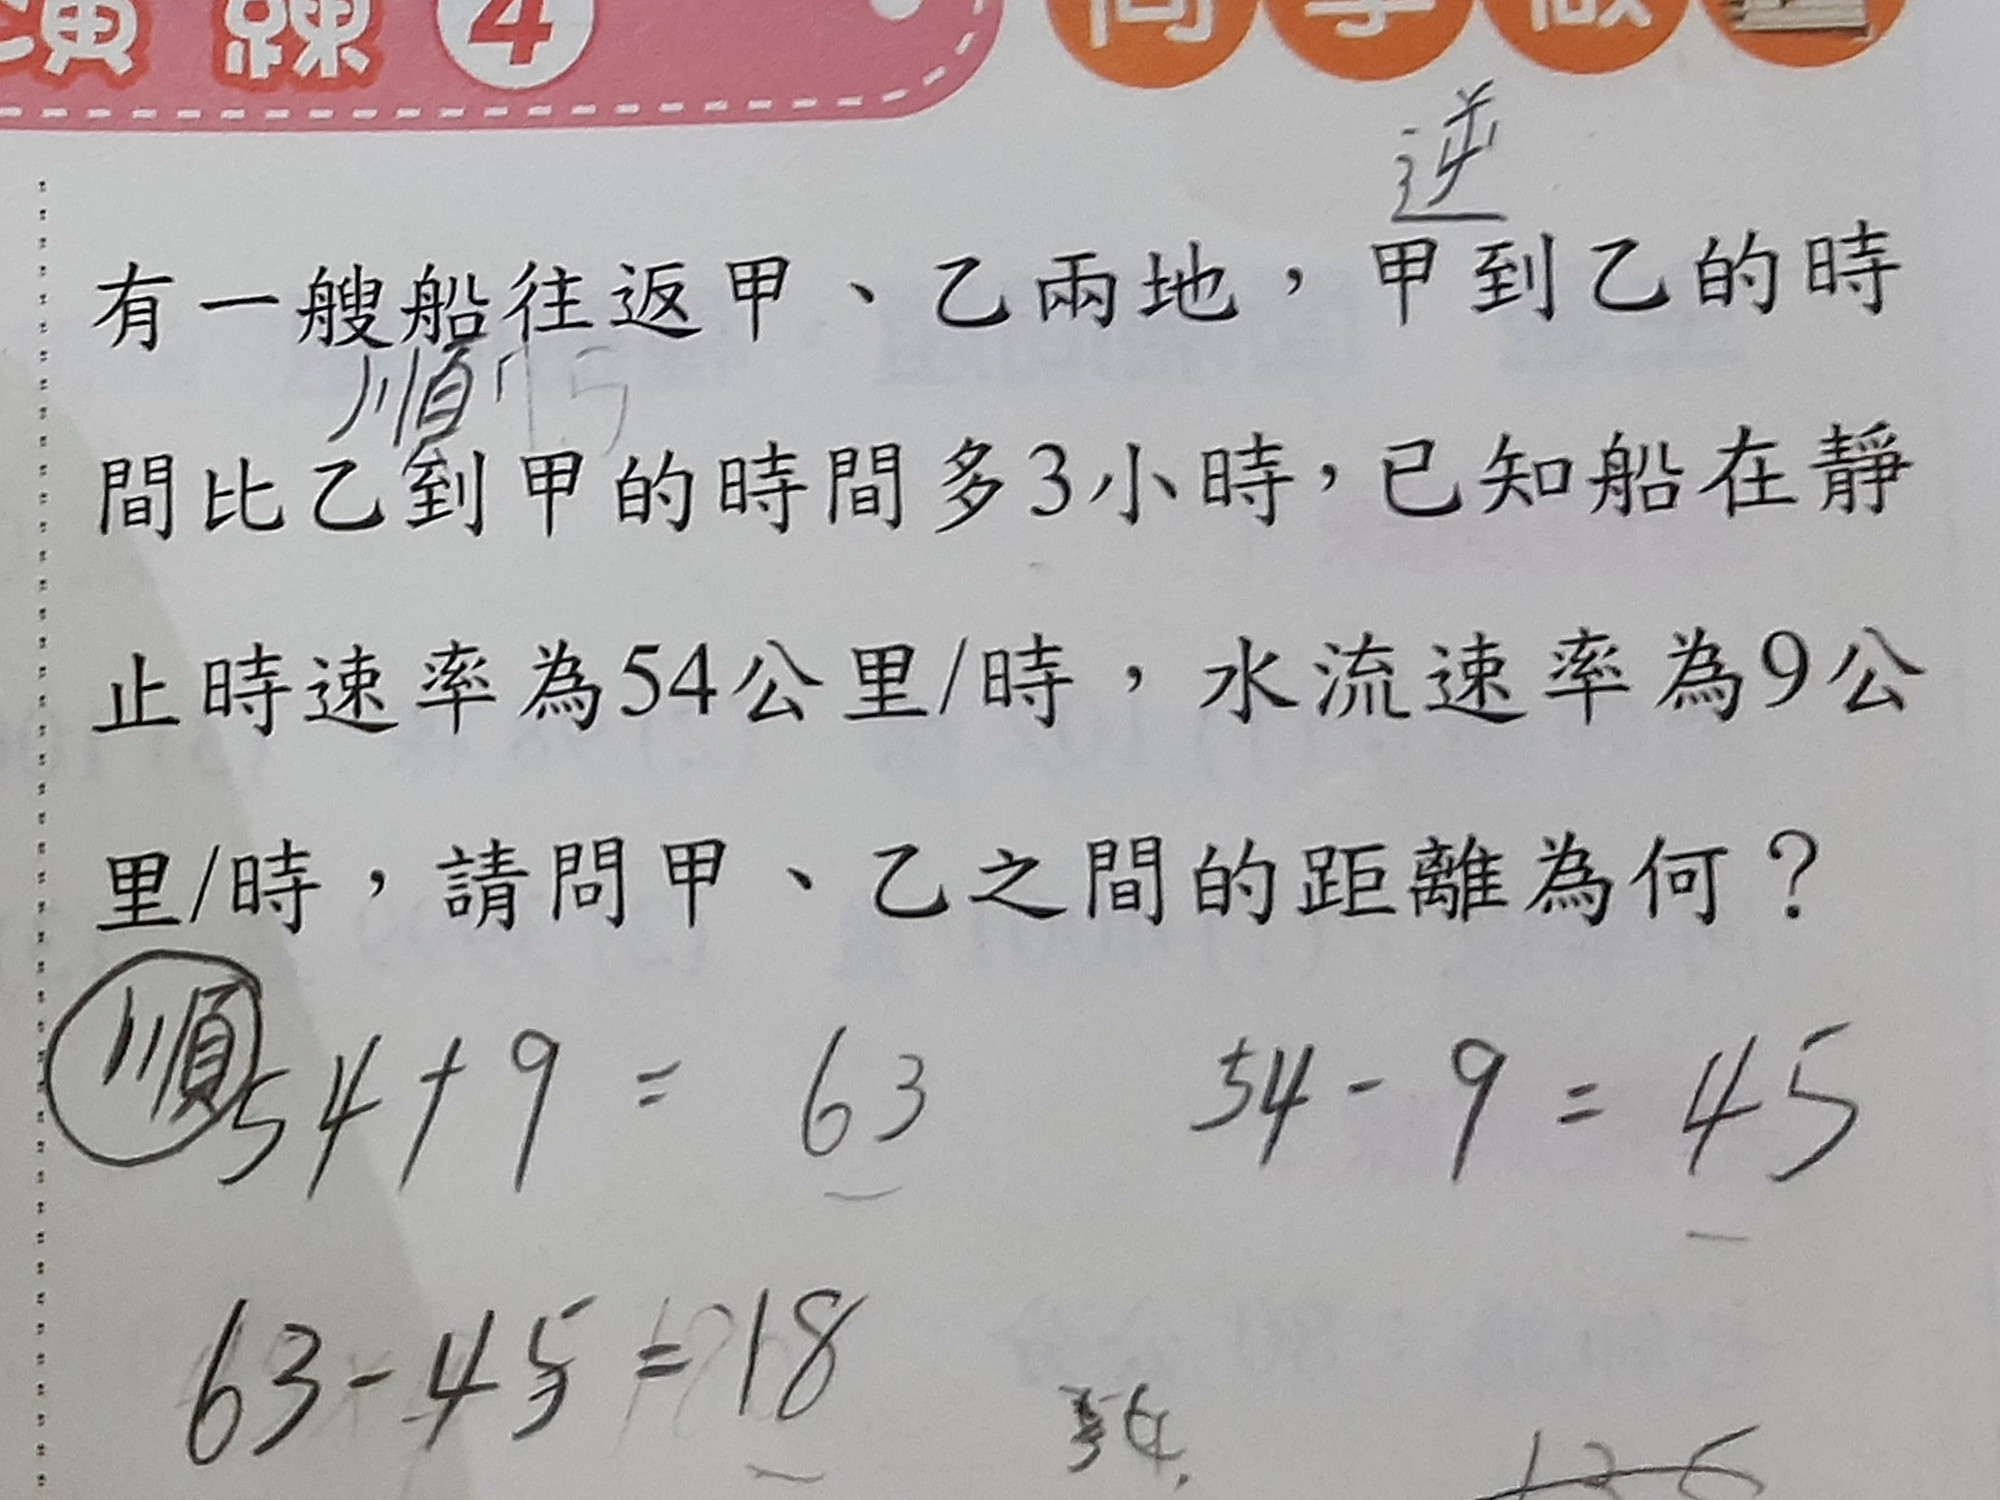 演練4 同學做
逆
有一艘船往返甲、乙兩地，甲到乙的時
順
間比乙到甲的時間多3小時，已知船在靜
止時速率為54公里/時，水流速率為9公
里/時，請問甲、乙之間的距離為何？
順 54+9=63 54-9=45
63-45=18